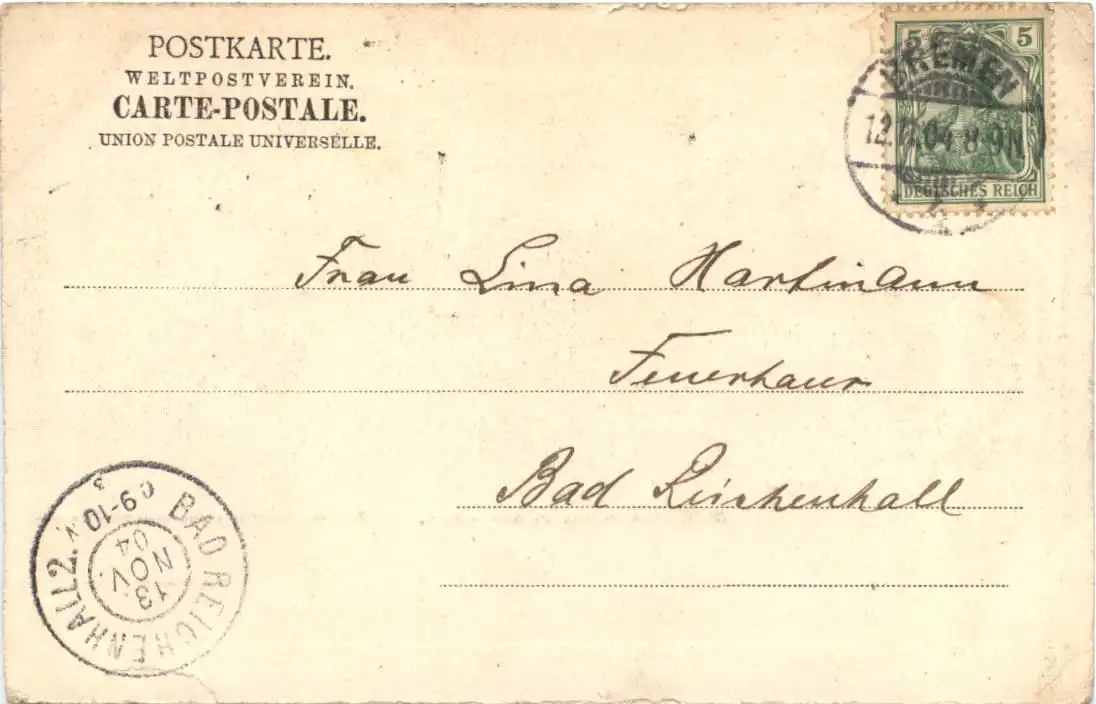 POSTKARTE.
WELTPOSTVEREIN.
CARTE-POSTALE.
UNION POSTALE UNIVERSELLE.
5 5
BREMEN
12. 04. 8-9N
DEUTSCHES REICH
Frau Lina Hartmann
Feuerhaus
Bad Reichenhall
BAD REICHENHALL 2.
9-10
13
NOV.
04